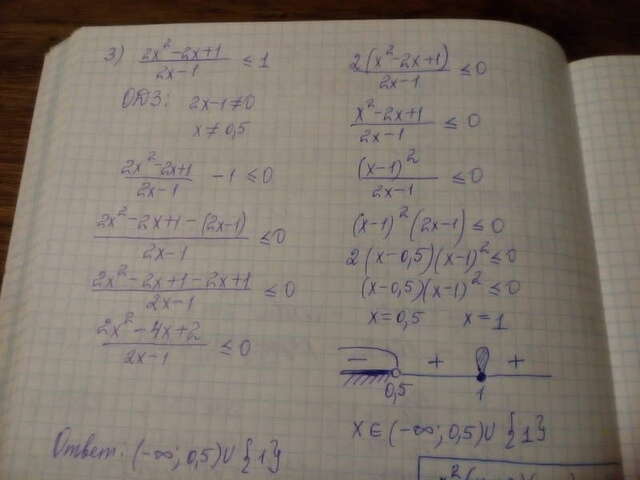 3) (2x²-2x+1)/(2x-1) ≤ 1
ОДЗ: 2x-1≠0
x≠0,5
(2x²-2x+1)/(2x-1) -1 ≤0
(2x²-2x+1-(2x-1))/(2x-1) ≤0
(2x²-2x+1-2x+1)/(2x-1) ≤0
(2x²-4x+2)/(2x-1) ≤0
Ответ: (-∞; 0,5)∪{1}
2(x²-2x+1)/(2x-1) ≤0
(x²-2x+1)/(2x-1) ≤ 0
(x-1)²/(2x-1) ≤0
(x-1)²(2x-1)≤0
2(x-0,5)(x-1)²≤0
(x-0,5)(x-1)²≤0
x=0,5 x=1
- + +
0,5 1
x∈(-∞; 0,5)∪{1}